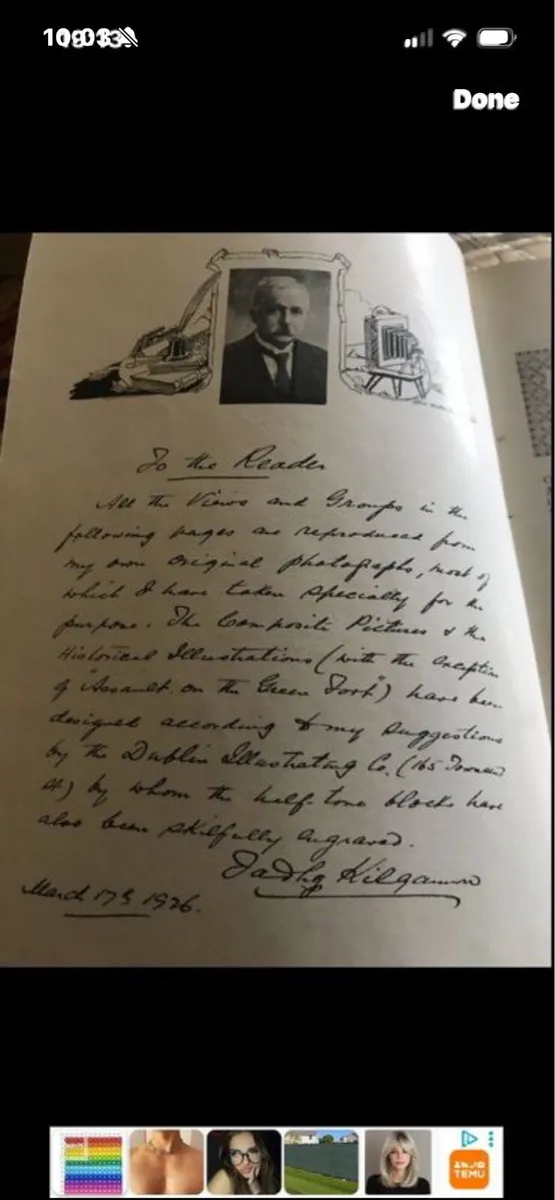 10:03
Done
To the Reader
All the Views and Groups in the
following pages are reproduced from
my own original photographs, most of
which I have taken specially for the
purpose. The Composite Pictures & the
Historical Illustrations (with the exception
of "Assault on the Green Fort") have been
designed according to my suggestions
by the Dublin Illustrating Co. (165 Townsend
St.) by whom the half-tone blocks have
also been skilfully engraved.
Tadhg Kilgannon
March 17th 1926.
TEMU